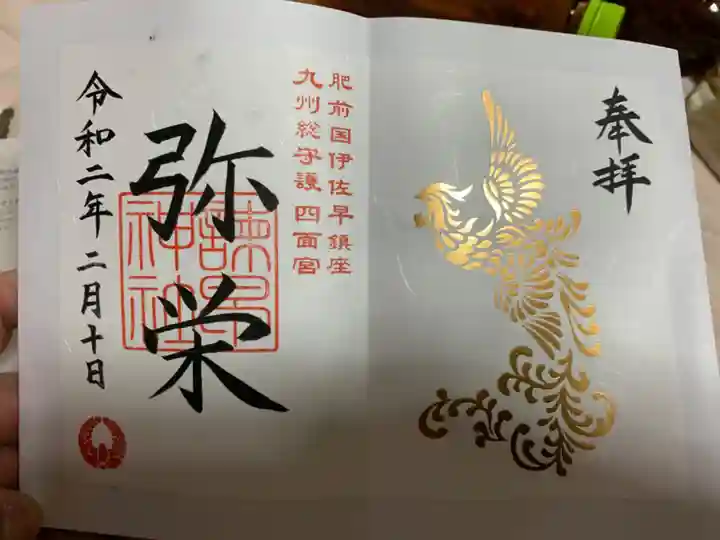 奉拝
肥前国伊佐早鎮座
九州総守護 四面宮
弥栄
諫早
神社
令和二年 二月十日